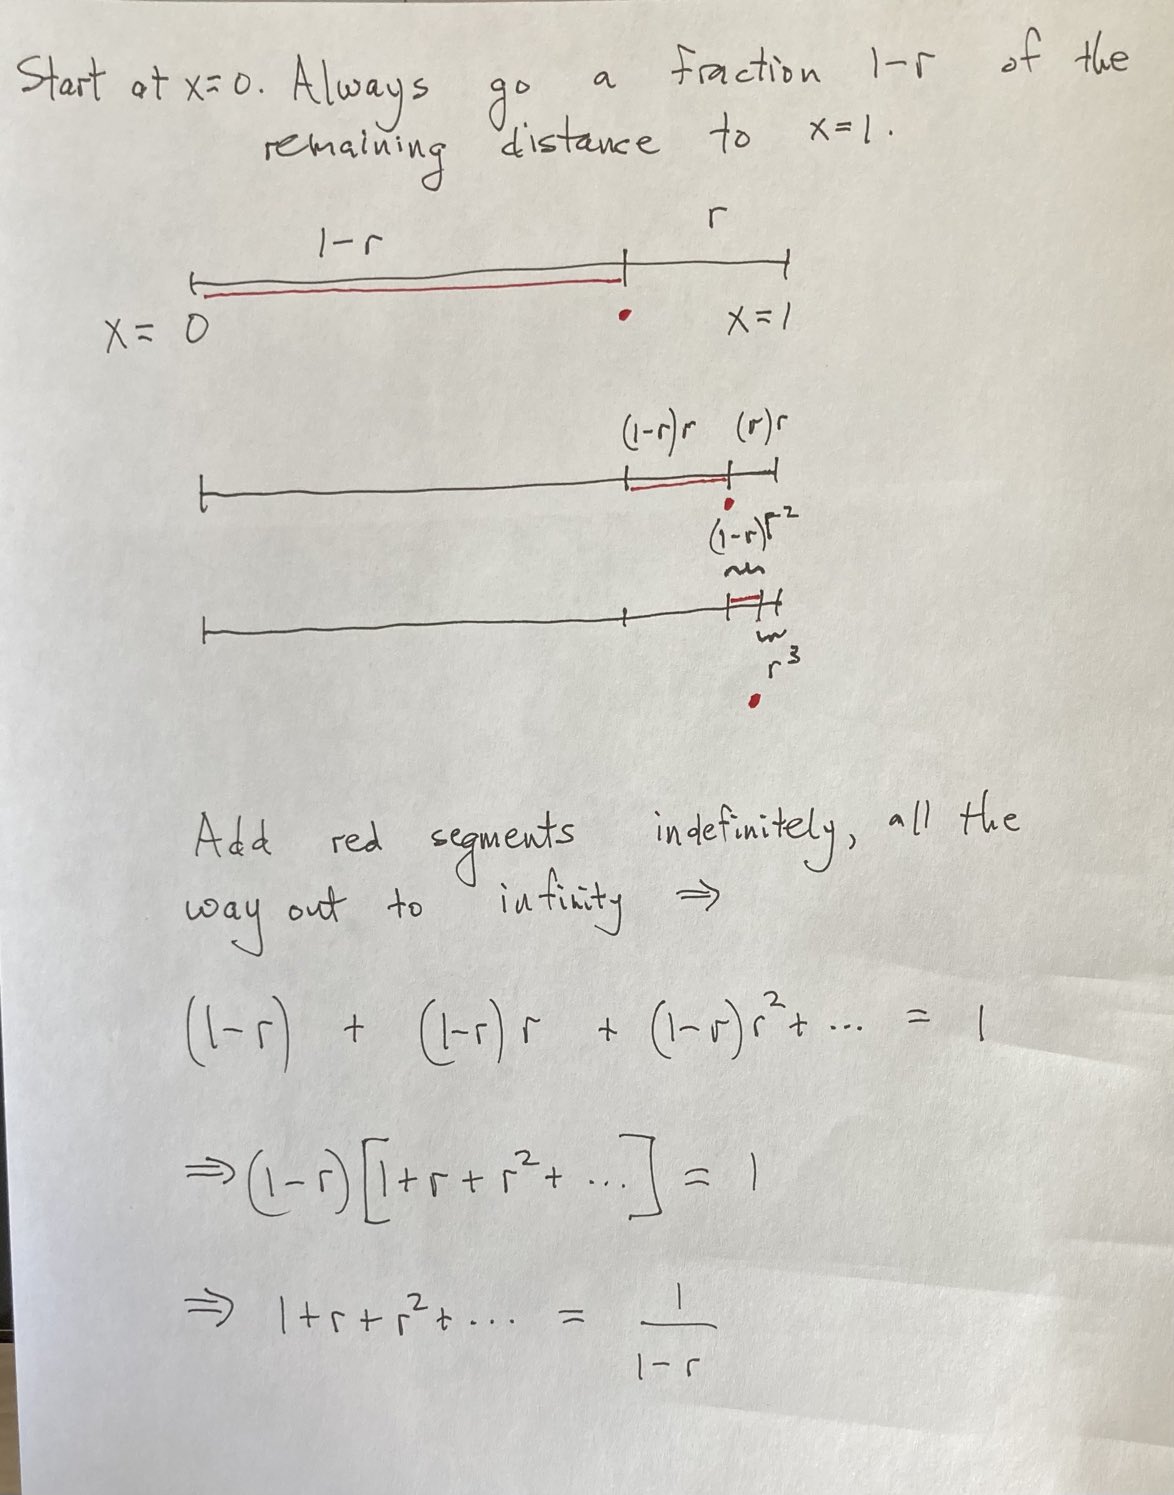 Start at x=0. Always go a fraction 1-r of the
remaining distance to x=1.
1-r r
x= 0 x=1
(1-r)r (r)r
(1-r)r²
r³
Add red segments indefinitely, all the
way out to infinity ⇒
(1-r) + (1-r)r + (1-r)r²+ ... = 1
⇒(1-r)[1+r+r²+ ...] = 1
⇒ 1+r+r²+... = 1/(1-r)